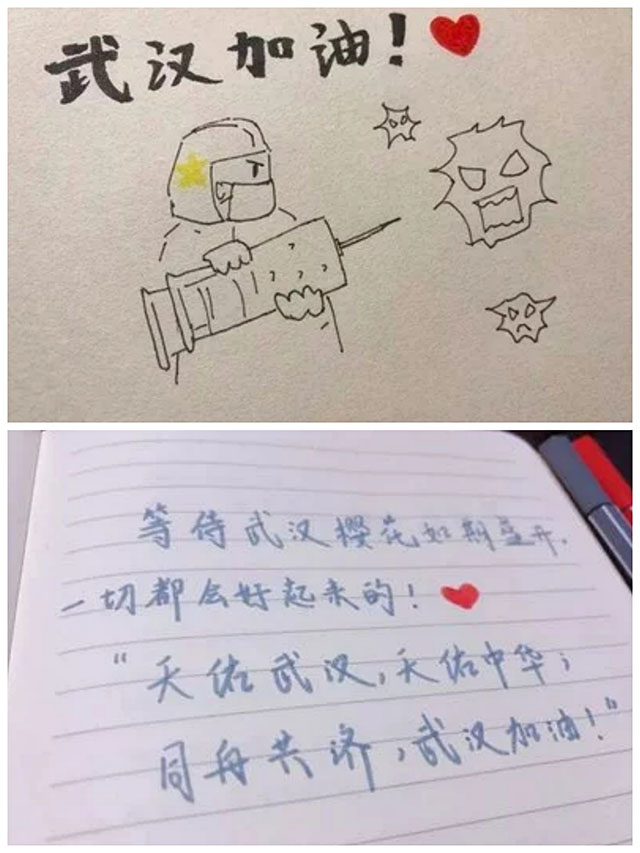 武汉加油!
等待武汉樱花如期盛开.
一切都会好起来的!
“天佑武汉,天佑中华;
同舟共济,武汉加油!”